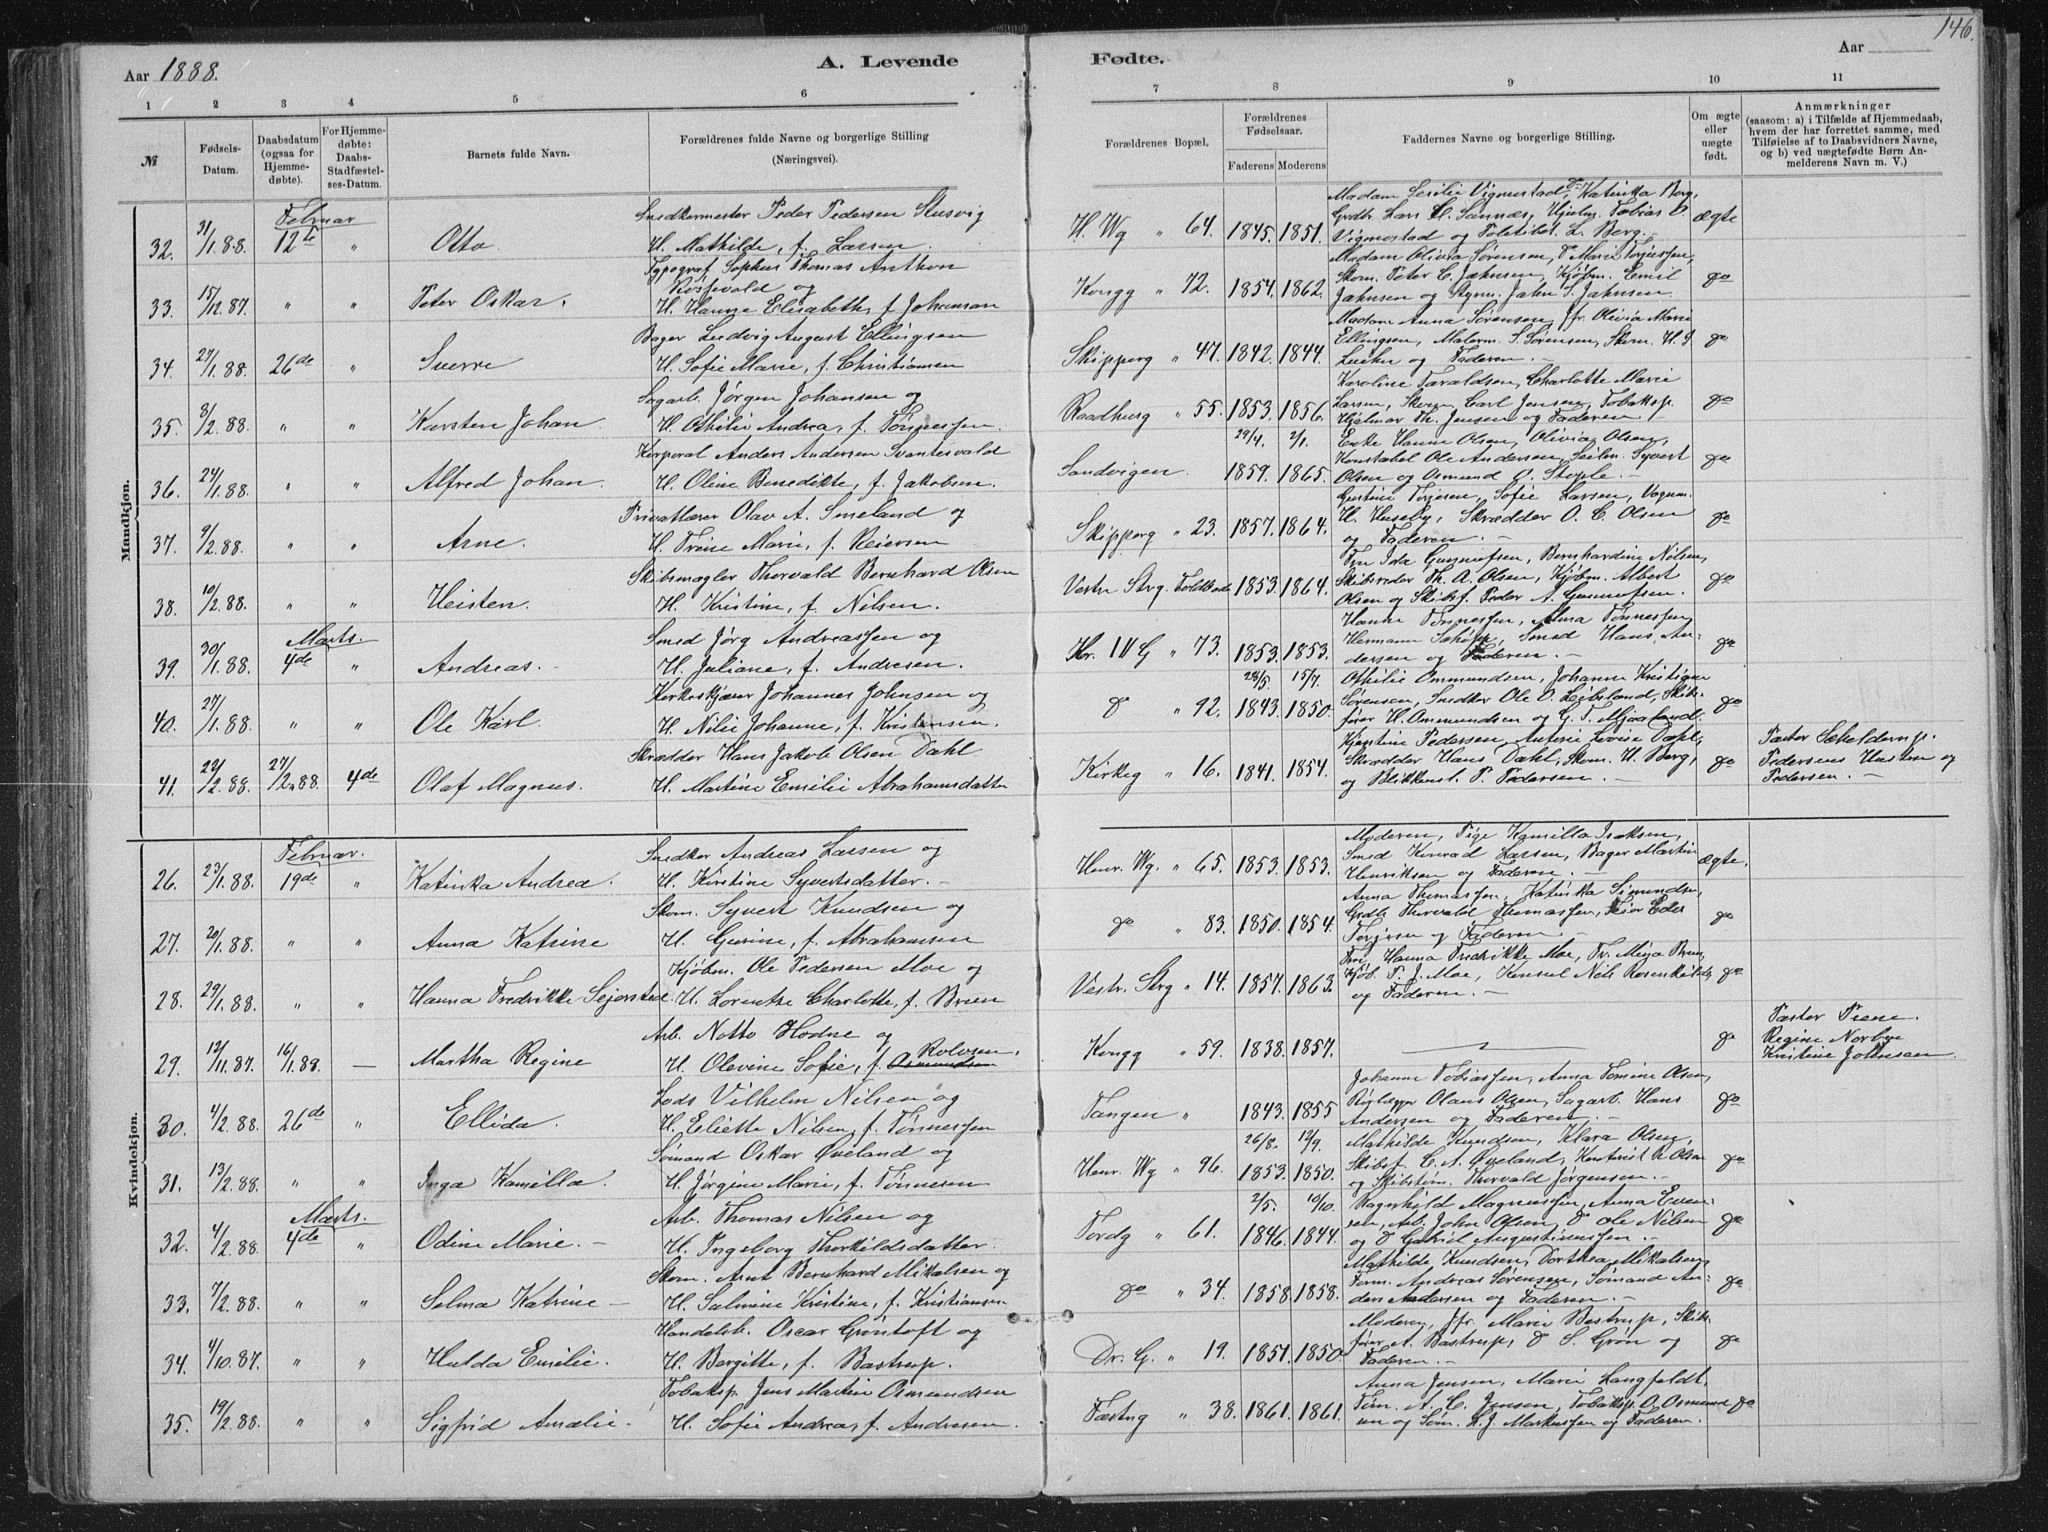 146.
Aar 1888.
A. Levende
Fødte.
Aar
1 2 3 4 5 6 7 8 9 10 11
№
Fødsels-Datum.
Daabsdatum (ogsaa for Hjemme-døbte).
For Hjemme-døbte: Daabs-Stadfæstel-ses-Datum.
Barnets fulde Navn.
Forældrenes fulde Navne og borgerlige Stilling (Næringsvei).
Forældrenes Bopæl.
Forældrenes Fødselsaar.
Faderens Moderens
Faddernes Navne og borgerlige Stilling.
Om ægte eller uægte født.
Anmærkninger (saasom: a) i Tilfælde af Hjemmedaab, hvem der har forrettet samme, med Tilføielse af to Daabsvidners Navne, og b) ved uægtefødte Børn An-melderens Navn m. V.)
Mandkjøn.
Februar
32. 31/1.88. 12te " Otto
Snedkermester Peder Pedersen Slusvig
H. Mathilde, f. Larsen.
H. Wg " 64. 1845. 1851.
Madam Sesilie Vigmostad, Do Katinka Berg,
Vigmostad og Politibet. L. Berg.
ægte
33. 15/12.87. " " Peter Oskar.
Typograf Sophus Thomas Anthon
Rosevold og
H. Hanne Elisabeth, f. Johansen
Kongg " 72. 1854. 1862.
Madam Olivia Sørensen, Do Marie Torjussen,
Skom. Peter C. Jahnsen, Kjøbm. Emil
Jahnsen og Styrm. Jahn S. Jahnsen
do
34. 27/1.88. 26de " Sverre
Bager Ludvig August Ellingsen
H. Sofie Marie, f. Christiansen
Skipperg " 47. 1842. 1844.
Madam Anna Sørensen, Jfr. Olivia Marie
Ellingsen, Malerm. S. Sørensen, Skom. H. J.
og Faderen.
do
35. 8/2.88. " " Karsten Johan.
Sagarb. Jørgen Johansen og
H. Othilie Andrea, f. Tønnessen.
Raadhusg " 55. 1853. 1856.
Karoline Taraldsen, Charlotte Marie
Larsen, Skom. Carl Jensen, Tobaksp.
Hjalmar Th. Jensen og Faderen
do
36. 24/1.88. " " Alfred Johan.
Korporal Anders Andersen Svantesvold
H. Oline Benedikte, f. Jakobsen.
Sandvigen.
29/4. 2/1.
1859. 1865.
Enke Hanne Olsen, Olivia Olsen,
Konstabel Ole Andersen, Seilm. Syvert
Olsen og Osmund O. Støple.
do
37. 9/2.88. " " Arne.
Privatlærer Olav A. Smeland og
H. Trine Marie, f. Reiersen
Skipperg " 23. 1857. 1864.
Gustine Torjesen, Sofie Larsen, Vognm.
H. Huseby, Skrædder O. C. Olsen
og Faderen.
do
38. 10/2.88. " " Heisten.
Skibsmægler Thorvald Bernhard Olsen
H. Kristine, f. Nilsen.
Vestre Strg. Toldbode 1853. 1864.
Fru Ida Gunnufsen, Bernhardine Nilsen,
Skibsreder Th. A. Olsen, Kjøbm. Albert
Olsen og Skibsf. Peder A. Gunnufsen.
do
Marts.
39. 30/1.88. 4de " Andreas.
Smed Jørg Andreassen og
H. Juliane, f. Andresen.
Kr. IV G " 73. 1853. 1853.
Hanne Tønnessen, Anna Tønnessen,
Hermann , Smed Hans An-
dersen og Faderen.
do
40. 27/1.88. " " Ole Karl.
Kirkeskjær Johannes Johnsen og
H. Nilie Johanne, f. Kristensen.
do " 92.
28/5. 15/7.
1843. 1850.
Othilie Ommundsen, Johanne Kristiane
Sørensen, Snedker Ole O. Leibsland, Skibs-
fører H. Ommundsen og G. T. Mjaaland.
do
41. 22/2.88. 27/2.88. 4de Olaf Magnus.
Skrædder Hans Jakob Olsen Dahl
H. Martine Emilie Abrahamsdatter
Kirkeg " 16. 1841. 1854.
Kjerstine Pedersen, Antonie Lovise Dahl,
Skrædder Hans Dahl, Skom. H. Berg,
og Blikkensl. P. Pedersen.
do
Pastor
Pedersens Hustru og
Pedersen.
Kvindekjøn.
Februar.
26. 23/1.88. 19de " Katinka Andrea.
Snedker Andreas Larsen og
H. Kirstine Syvertsdatter.
Henr. Wg. " 65. 1853. 1853.
Moderen, Pige Kamilla Isaksen,
Smed Konrad Larsen, Bager Martin
Henriksen og Faderen.
ægte.
27. 20/1.88. " " Anna Katrine
Skom. Syvert Knudsen og
H. Gurine, f. Abrahamsen
do " 83. 1850. 1854.
Anna Thomassen, Katinka Simundsen,
Grdb. Thorvald Thomassen, Feier Eder
Torjesen og Faderen.
do
28. 29/1.88. " " Hanna Fredrikke Sejersted.
Kjøbm. Ole Pedersen Moe og
H. Lorentze Charlotte, f. Bruun
Vestr. Strg " 14. 1857. 1863.
Fru Hanna Fredrikke Moe, Fr. Mina Bruun,
Kjøb. P. J. Moe, Konsul Nils Rosenkilde,
og Faderen.
do
29. 12/11.87. 16/1.88. — Martha Regine
Arb. Notto Hodne og
Rolvsen.
H. Olevine Sofie, f. Osmundsen
Kongg " 59. 1838. 1857.
do
Pastor Trene.
Regine Norbye
Kristine Johnsen
30. 4/2.88. 26de " Ellida.
Lods Vilhelm Nilsen og
H. Eliette Nilsen, f. Tønnessen
Tangen " 1843. 1855
Johanne Tobiassen, Anna Tomine Olsen,
Riglægger Olaus Olsen, Sagarb. Hans
Andersen og Faderen.
do
31. 13/2.88. " " Inga Kamilla.
Sømand Oskar Øveland og
H. Jørgine Marie, f. Tønnesen
Henr. Wg " 96.
26/8. 12/9.
1853. 1850.
Mathilde Knudsen, Klara Olsen,
Skibsf. C. A. Øveland, R. Olsen
og Skibstøm. Thorvald Jørgensen.
do
Marts.
32. 4/2.88. 4de " Odine Marie.
Arb. Thomas Nilsen og
H. Ingeborg Thorkildsdatter.
Tordg " 61.
2/5. 10/10.
1846. 1844.
Ragnhild Magnussen, Anna Even-
sen, Arb. John Olsen, Do Ole Nilsen
og Do Gabriel Augustinussen.
do
33. 7/2.88. " " Selma Katrine
Skom. Arnt Bernhard Mikalsen og
H. Salmine Kristine, f. Kristiansen
do " 34. 1858. 1858.
Mathilde Knudsen, Dorthea Mikalsen,
Tøm. Andreas Sørensen, Sømand An-
ders Andersen og Faderen.
do
34. 4/10.87. " " Hulda Emilie.
Handelsb. Oscar Grøntoft og
H. Bergitte, f. Bastrup.
Dr. G. " 19. 1851. 1850.
Moderen, Jfr. Marie Bastrup, Skibs-
fører A. Bastrup, Do S. Grøn og
Faderen.
do
35. 19/2.88. " " Sigfrid Amalie.
Tobaksp. Jens Martin Osmundsen
H. Sofie Andrea, f. Andresen.
Fæstng " 38. 1861. 1861.
Anna Jensen, Marie Langfeldt,
Tøm. A. C. Jensen, Tobaksp. O. Osmund-
sen og Søm. L. J. Markussen og Faderen.
do